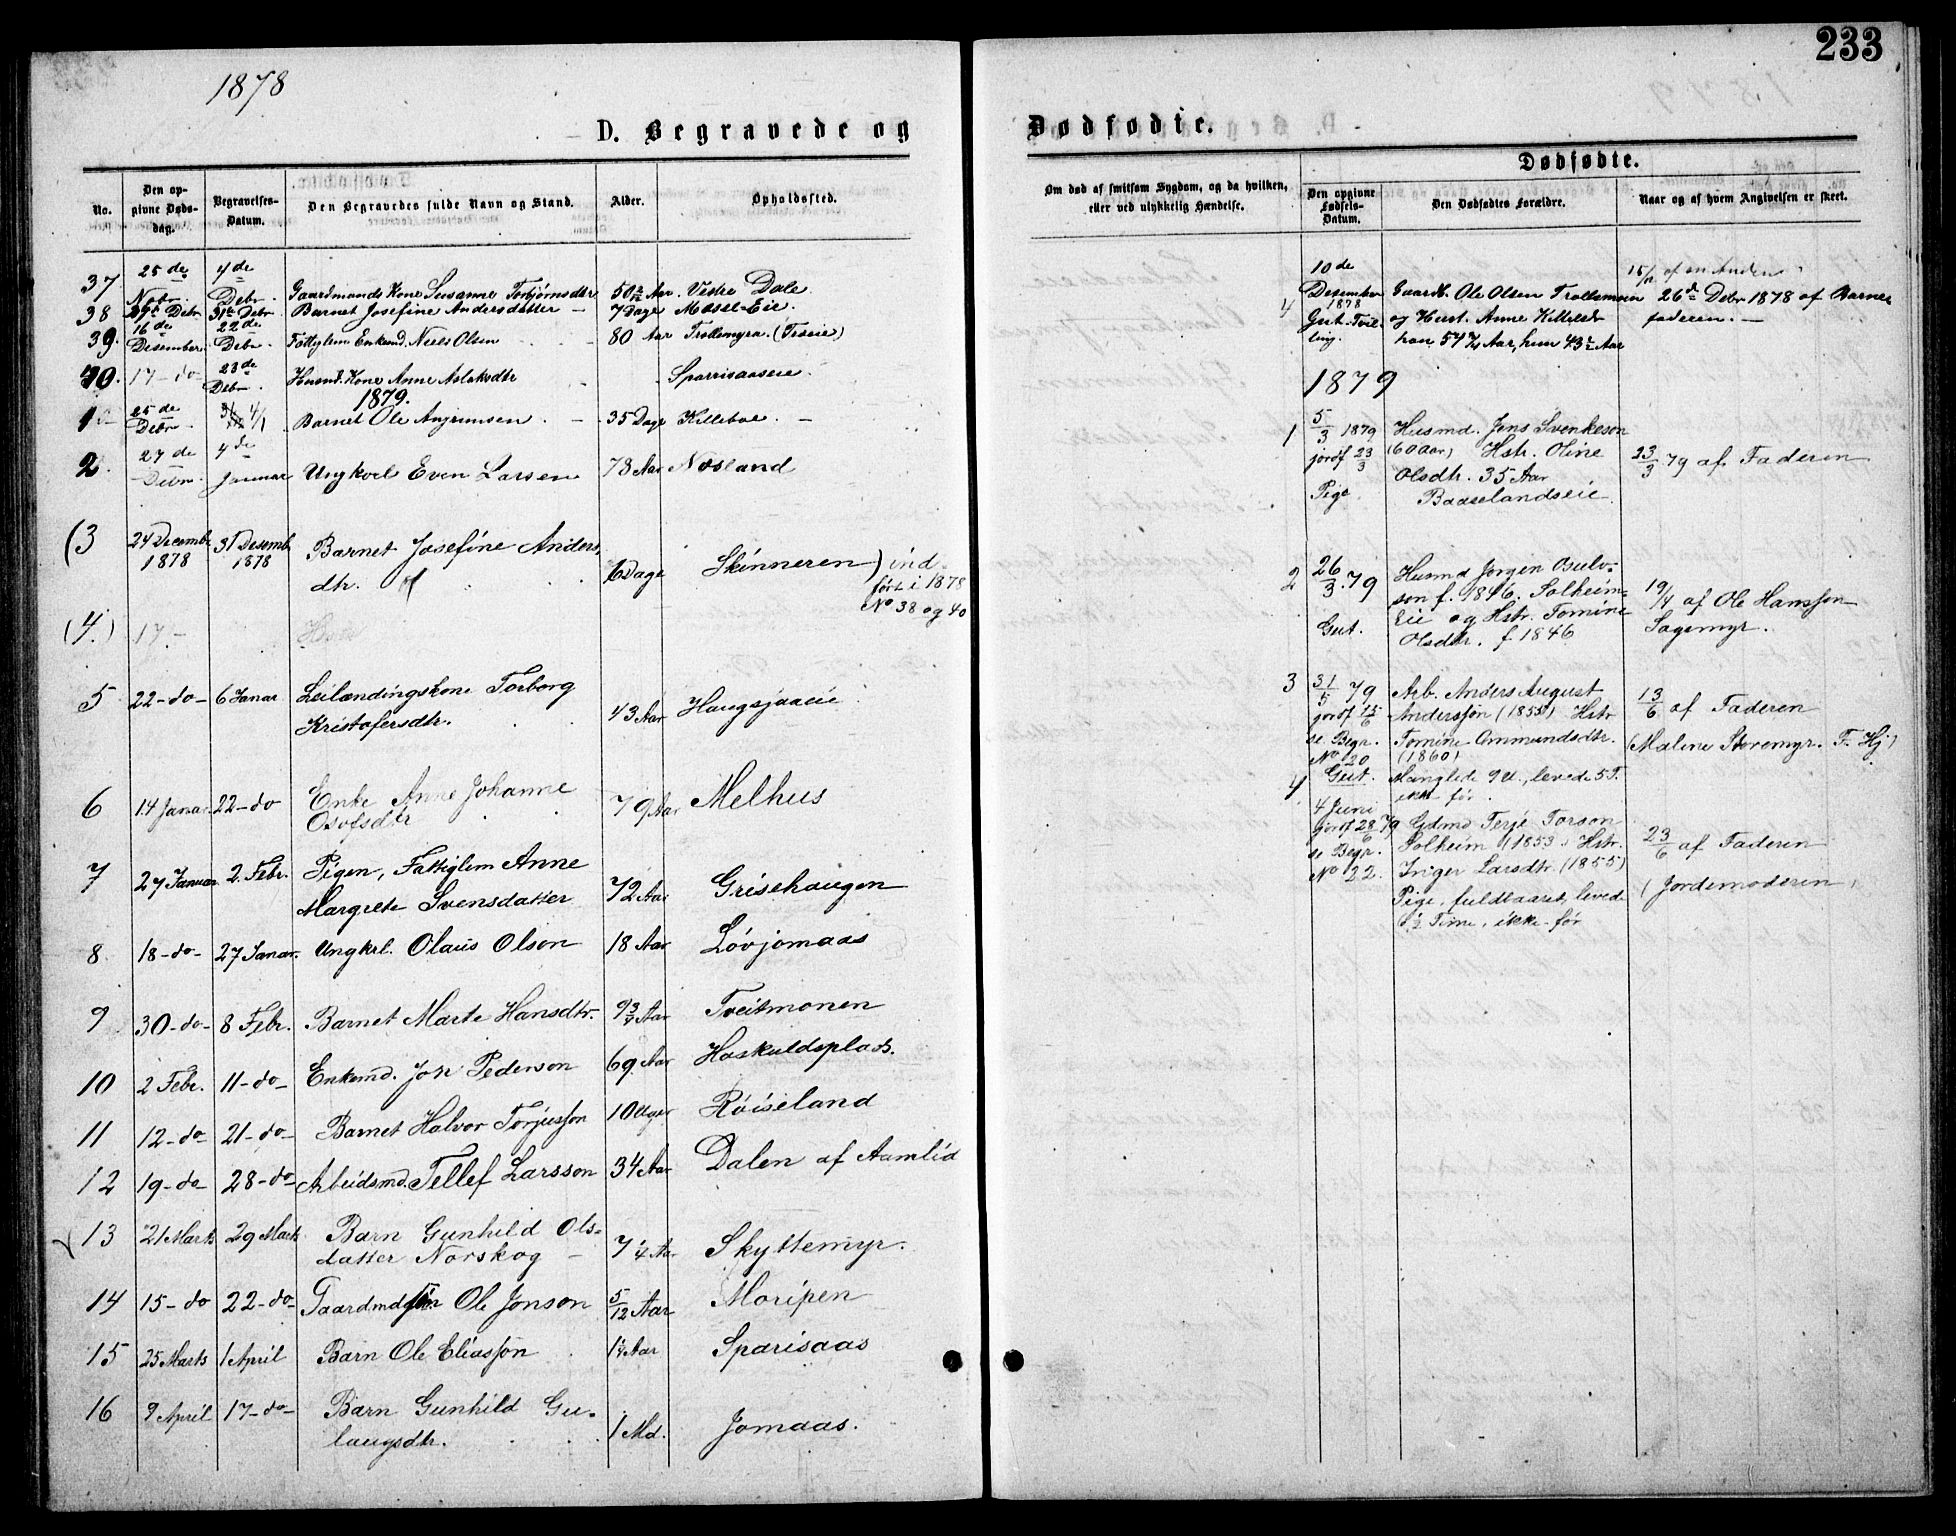 233
1878
D. Begravede og
Dødfødte.
No.
Den op-
givne Døds-
dag.
Begravelses-
Datum.
Den Begravedes fulde Navn og Stand.
Alder.
Opholdssted.
37 25de Novbr. 4de Debr. Gaardmands Kone Susanne Torbjørnsdtr Aar. Vestre Dale
38 Debr. 31te Debr. Barnet Josefine Andersdatter – 7 Dage Eie.
39. 16de Desember. 22de Debr. Fattiglem Enkemd. Niels Olsen 80 Aar Trollemyra.
40. 17–do 23de Debr. Husmd. Kone Anne Aslaksdtr Sparrisaaseie.
1879.
1 25de Debr 4/1 Barnet Ole 35 Dage Killeboe. –
2. 27de Debr. 4de Januar Ungkarl Even Larsen 73 Aar Næsland
(3 24 Decemb. 1878 31 Desemb. 1878 Barnet Josefine Anders
dtr. 6 Dage Skinneren) ind-
ført i 1878
No 38 og 40
(4.) 17.–
5 22–do– 6 Janar Leilændingskone Torborg
Kristofersdtr. 43 Aar Haugsjaaeie
6 14 Janar 22–do Enke Anne Johanne
Osofsdtr 79 Aar Melhus
7 27 Januar 2. Febr. Pigen, Fattiglem Anne
Margrete Svensdatter 72 Aar Grisehaugen
8. 18–do– 27 Janar. Ungkrl. Olaus Olson 18 Aar Løvjomaas
9 30–do– 8 Febr. Barnet Marte Hansdtr. 9¾ Aar Tveitmonen
10 2 Febr. 11–do– Enkemd. Pederson 69 Aar Haskuldsplads.
11 12–do– 21–do– Barnet Halvor Torjusson 10 Uger Røiseland
12 19–do– 28–do– Arbeidsmd. Tellef Larsson 34 Aar Dalen af Aamlid
13 21 Marts 29 Marts Barn Gunhild Ols-
datter Norskog – 7 ¼ Aar Skyttemyr.
14 15–do 22–do– Gaardmd Ole Jonson 5/12 Aar Moripen
15 25 Marts 1 April Barn Ole Eliasson 1¼ Aar Sparisaas
16 9 April 17–do– Barn Gunhild Gu-
laugsdtr. 1 Md. Jomaas.
Om død af smitsom Sygdom, og da hvilken,
eller ved ulykkelig Hændelse.
Dødfødte.
Den opgivne
Fødsels-
Datum.
Den Dødfødtes Forældre.
Naar og af hvem Angivelsen er skeet.
4 10de Desember 1878 Gut. Tvil-
ling. Gaardb. Ole Olsen Trollemoen
og Hust. Anne Kittelsdtr
han 57 ¾ Aar, hun 43 Aar
af en Anden
26de Debr 1878 af Barne-
faderen. –
1879
1 5/3 1879
jordf 23/3
Pige Husmd. Jens Svenkeson
(60 aar) Hstr. Oline
Olsdtr. 35 Aar
Baaselandseie
23/3 79 af Faderen
2 26/3. 79
Gut. Husmd Jørgen Osulv-
son f. 1846. Solheim-
Eie og Hstr. Tomine
Olsdtr. f. 1846
19/4 af Ole Hansson
Sagemyr.
3 31/5 79
jordf 15/6
se Begr.
No 20
Gut. Arb. Anders August
Anderssøn (1855) Hstr
Tomine Ommundsdtr.
(1860)
Manglede 9 U., levede 5 T.
ikke før.
13/6 af Faderen
(Maline Storemyr. F. Hj)
4 4 Juni
jordf 28/6 79
se Begr.
No 22. Gdmd Terje Torson
Solheim (1853) Hstr.
Inger Larsdtr. (1855)
Pige, fuldbaaret, levede
1½ Time, ikke før
23/6 af Faderen
(Jordemoderen)